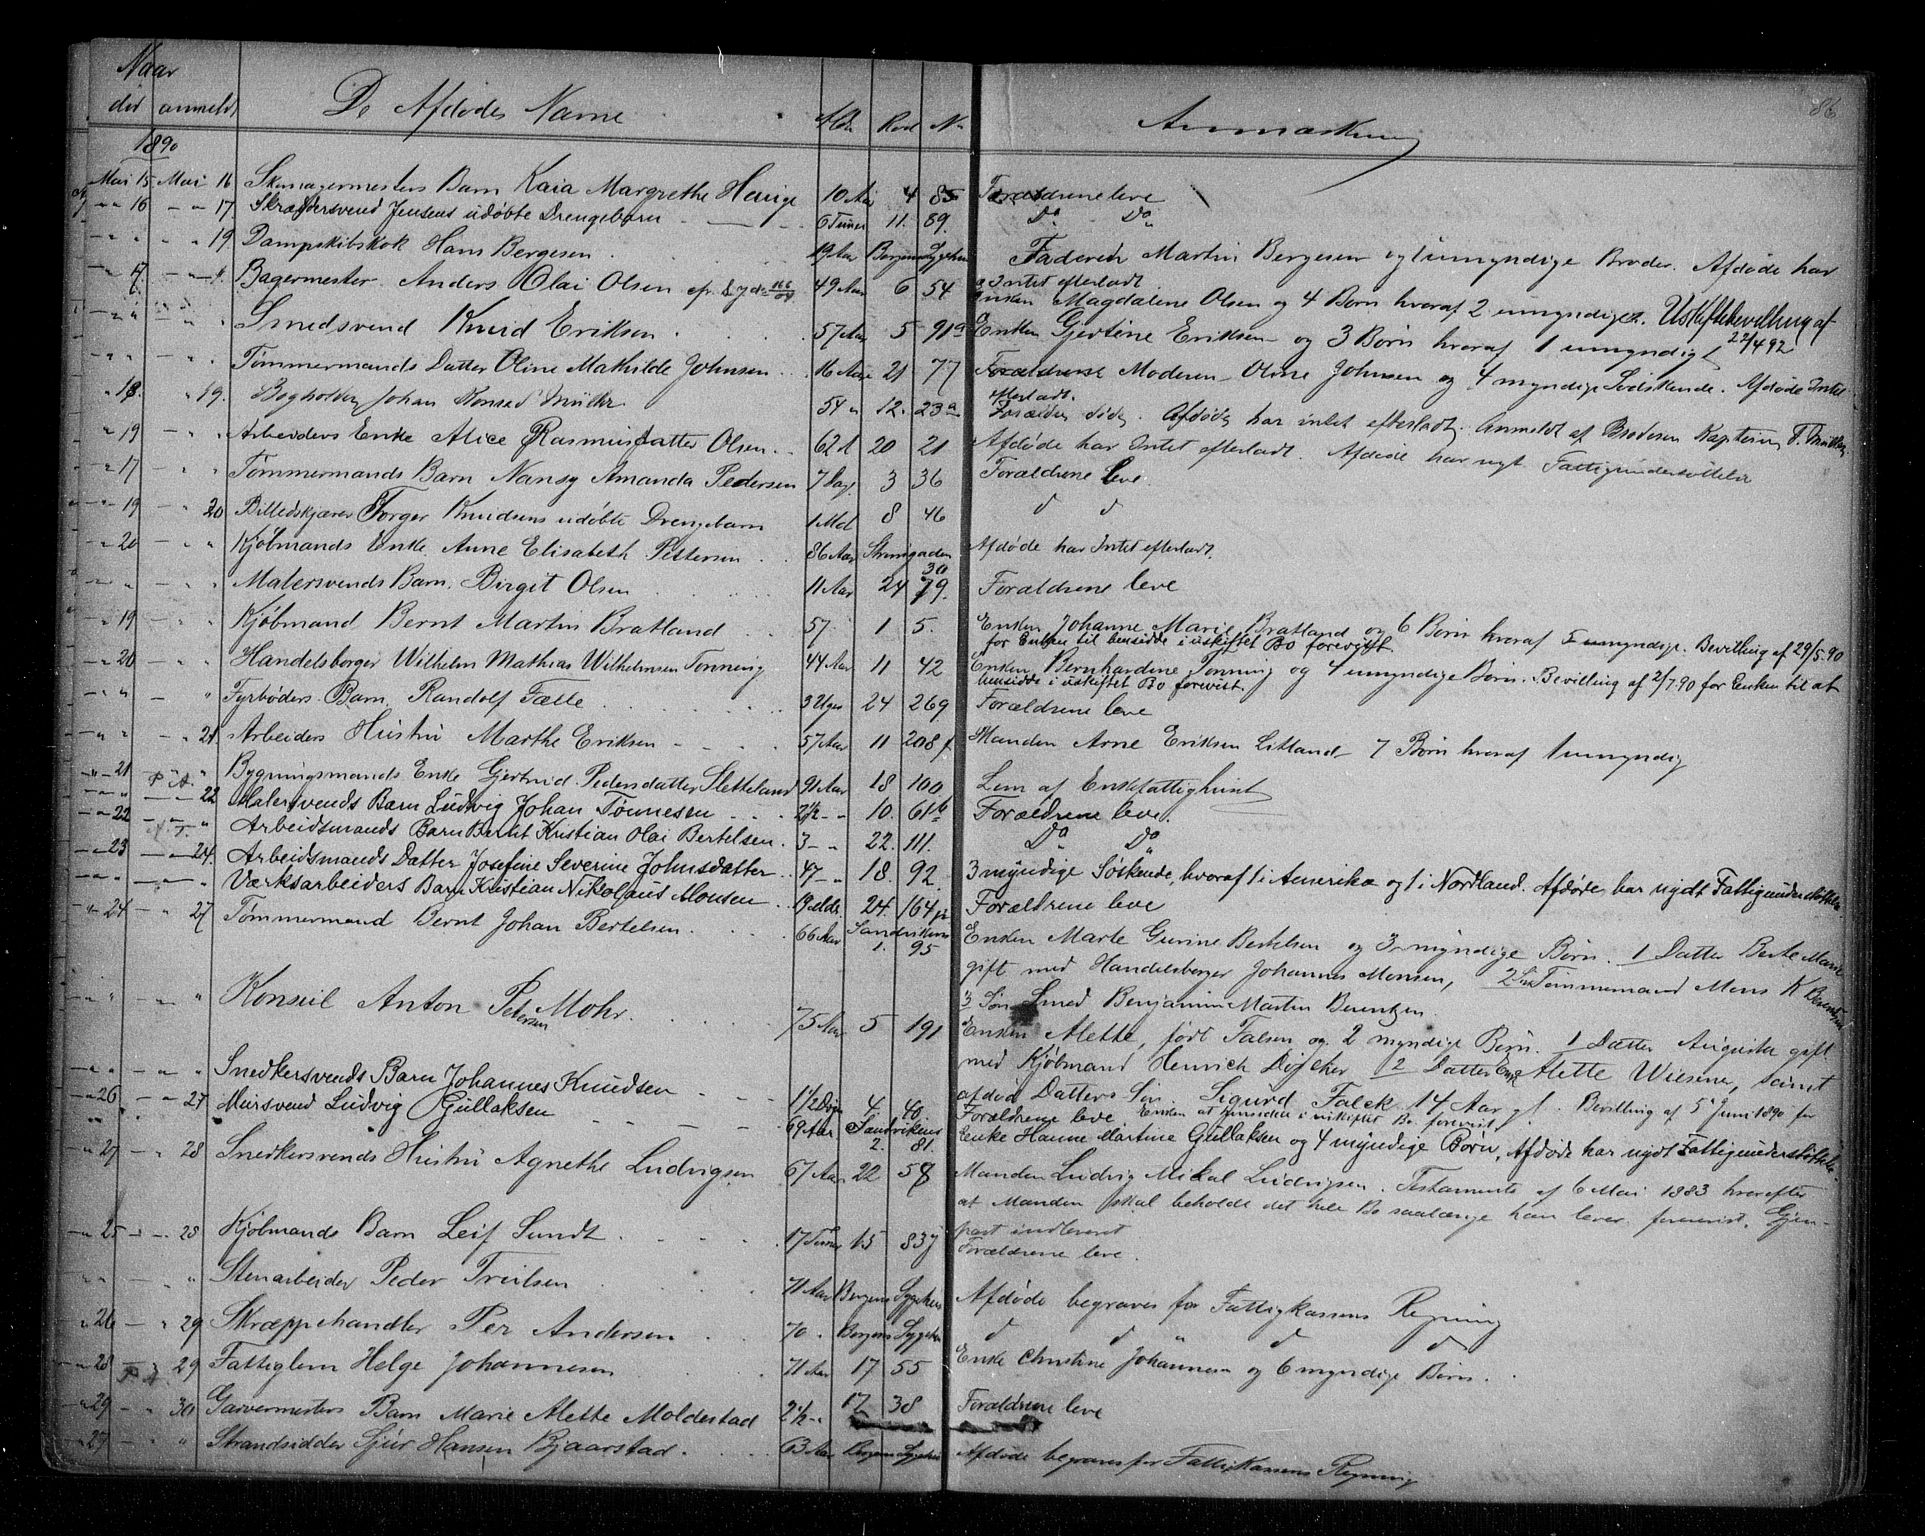 86
Naar
død anmeldt De Afdødes Navne Alder Rod No Anmærkning
1890
Mai 15 Mai 16 Skomagermesters Barn Kaia Margrethe Hauge 10 Aar 4 85 Forældrene leve
" 16 " 17 Skræddersvend Jensens udøbte Drengebarn 6 Timer 11. 89. Do Do
" " 19 Dampskibskok Hans Bergesen 19 Aar Bergens Sygehus Faderen Martin Bergesen og 1 umyndige Broder. Afdøde har
Intet efterladt.
" 17 " " Bagermester Anders Olai Olsen 49 Aar 6 54 Enken Magdalene Olsen og 4 Børn hvoraf 2 umyndige. Uskiftebevilling af
22/4 92
" " " " Smedsvend Knud Eriksen 57 Aar 5 91a Enken Gjertine Eriksen og 3 Børn hvoraf 1 umyndig
" " " Tømmermands Datter Oline Mathilde Johnsen 16 Aar 21 77 Forældrene Moderen Oline Johnsen og 4 myndige Sødskende. Afdøde Intet
efterladt.
" 18. " 19. Bogholder Johan Konrad Müller 54 " 12. 23a Forældre døde. Afdøde har intet efterladt. Anmeldt af Broderen Kaptein F. Müller
" 19 " " Arbeiders Enke Alice Rasmusdatter Olsen 62 20 21 Afdøde har Intet efterladt. Afdøde har nydt Fattigunderstøttelse
" 17 " " Tømmermands Barn Nansy Amanda Pedersen 7 Dage 3 36 Forældrene leve.
" 19 " 20 Billedskjærer Torger Knudsens udøbte Drengebarn 1 Md 8 46 d d
" 20 " " Kjøbmands Enke Anne Elisabeth Pettersen 86 Aar Strangaden 30 Afdøde har Intet efterladt.
" " " Malersvends Barn Birgit Olsen 11 Aar 24 79. Forældrene leve
" 19 " " Kjøbmand Bernt Martin Bratland 57. 1 5. Enken Johanne Marie Bratland og 6 Børn hvoraf 5 umyndige. Bevilling af 29/5.90
for Enken til hensidde i uskiftet Bo forevist.
" 20 " " Handelsborger Wilhelm Mathias Wilhelmsen Tonning 44 Aar 11 42 Enken Bernhardine Tonning og 4 umyndige Børn. Bevilling af 2/7.90 for Enken til at
hensidde i uskiftet Bo forevist
" " " Fyrbøders Barn Randolf Fætte 3 Uger 24 269 Forældrene leve
" " " 21 Arbeiders Hustru Marthe Eriksen 57 Aar 11 208 f Manden Arne Eriksen Litland 7 Børn hvoraf 1 umyndig
" 21 " " Bygningsmands Enke Gjertrud Pedersdatter Sletteland 91 Aar 18 100 Lem af Enkefattighuset
" " " 22 Malersvends Barn Ludvig Johan Tønnesen 2 1/2 " 10. 61b Forældrene leve.
" 22 " " Arbeidsmands Barn Bernt Kristian Olai Bertelsen 3 " 22. 111. Do Do
" 23 " 24. Arbeidsmands Datter Josefine Severine Johnsdatter 47 " 18. 92. 3 myndige Søskende, hvoraf 1 i Amerika og 1 i Nordland. Afdøde har nydt Fattigunderstøttelse
" " " " Værksarbeiders Barn Kristian Nikolaus Monsen 9 Mdr. 24. 164 Forældrene leve
" 24 " 27 Tømmermand Bernt Johan Bertelsen 66 Aar Sandvikens 1. 95 Enken Marte Gurine Bertelsen og 3 myndige Børn. 1 Datter Berte Marie
gift med Handelsborger Johannes Monsen, 2 Søn Tømmermand Mons K Berentsen
3 Søn Smed Benjamin Martin Berentzen.
" " " " Konsul Anton Petersen Mohr. 75 Aar 5 191 Enken Alette, født Falsen og 2 myndige Børn. 1 Datter Augusta gift
med Kjøbmand Henrich Døscher 2 Datter Enke Alette Wiesene, samt
afdød Datters Søn Sigurd Falck 14 Aar gl. Bevilling af 5 Juni 1890 for
Enken at hensidde i uskiftet Bo forevist.
" " " " Snedkersvends Barn Johannes Knudsen 1 1/2 Døgn 4 40. Forældrene leve
" 26 " 27 Mursvend Ludvig Gullaksen 69 Aar Sandvikens 2. 81. Enke Hanne Martine Gullaksen og 4 myndige Børn, Afdøde har nydt Fattigunderstøttelse
" 27 " 28 Snedkersvends Hustru Agnethe Ludvigsen 67 Aar 22 58 Manden Ludvig Mikal Ludvigsen. Testamente af 6 Mai 1883 hvorefter
at Manden skal beholde det hele Bo saalænge han lever, forevist. Gjen-
part indleveret
" 25 " 28 Kjøbmands Barn Leif Sundt 17 Timer 15 83 Forældrene leve.
" " " Stenarbeider Peder Truilsen 71 Aar Bergens Sygehus Afdøde begraves for Fattigkassens Regning
" 26 " 29 Skræppehandler Per Andersen 70 " Bergens Sygehus d d " d d
" 28 " 29 Fattiglem Helge Johannesen 71 Aar 17 55 Enke Christine Johannesen og 6 myndige Børn.
" 29 " 30 Garvermesters Barn Marie Alette Moldestad 2 1/2 " 17 38 Forældrene leve
" 27 " " Strandsidder Sjur Hansen Bjaarstad 63 Aar Bergens Sygehus Afdøde begraves for Fattigkassens Regning